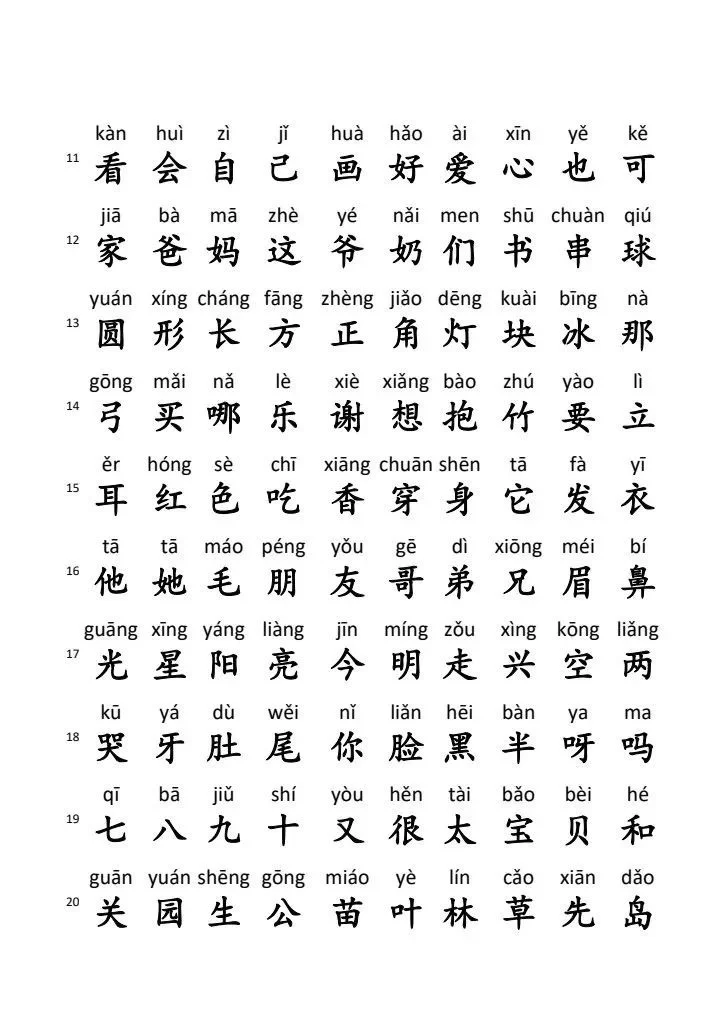 kàn huì zì jǐ huà hǎo ài xīn yě kě
11 看 会 自 己 画 好 爱 心 也 可
jiā bà mā zhè yé nǎi men shū chuàn qiú
12 家 爸 妈 这 爷 奶 们 书 串 球
yuán xíng cháng fāng zhèng jiǎo dēng kuài bīng nà
13 圆 形 长 方 正 角 灯 块 冰 那
gōng mǎi nǎ lè xiè xiǎng bào zhú yào lì
14 弓 买 哪 乐 谢 想 抱 竹 要 立
ěr hóng sè chī xiāng chuān shēn tā fà yī
15 耳 红 色 吃 香 穿 身 它 发 衣
tā tā máo péng yǒu gē dì xiōng méi bí
16 他 她 毛 朋 友 哥 弟 兄 眉 鼻
guāng xīng yáng liàng jīn míng zǒu xìng kōng liǎng
17 光 星 阳 亮 今 明 走 兴 空 两
kū yá dù wěi nǐ liǎn hēi bàn ya ma
18 哭 牙 肚 尾 你 脸 黑 半 呀 吗
qī bā jiǔ shí yòu hěn tài bǎo bèi hé
19 七 八 九 十 又 很 太 宝 贝 和
guān yuán shēng gōng miáo yè lín cǎo xiān dǎo
20 关 园 生 公 苗 叶 林 草 先 岛